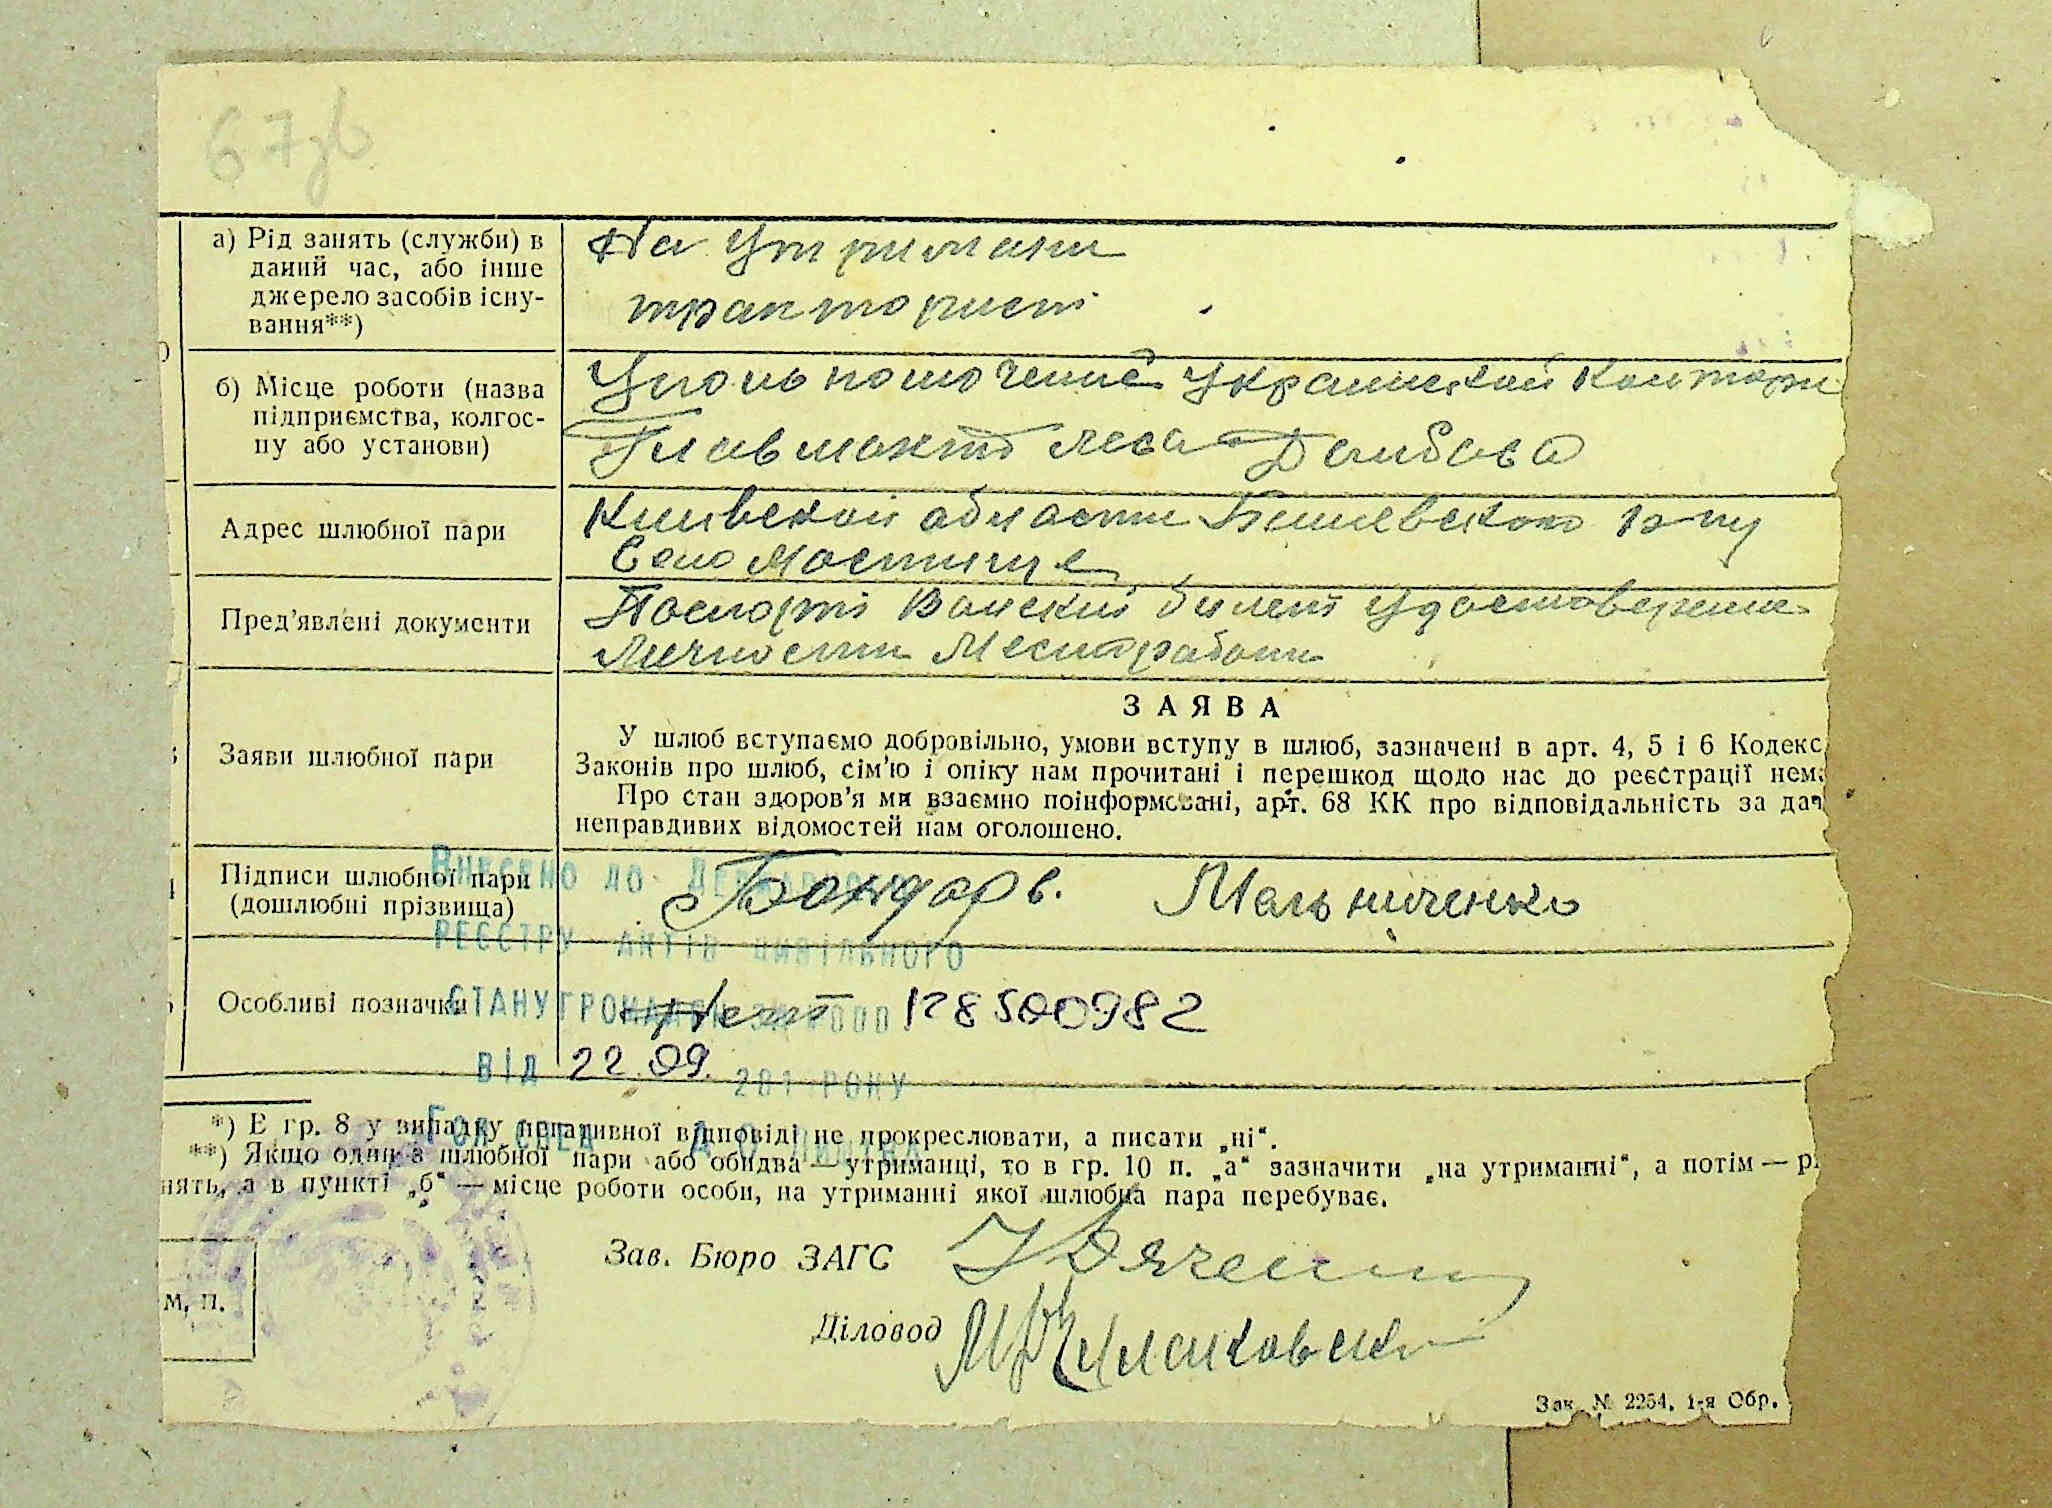 67зв
а) Рід занять (службы) в
даний час, або інше
джерело засобів існу-
вання**)
На Утримани
тракторист
б) Місце роботи (назва
підприємства, колгос-
пу або установи)
Упольномочение Украинской Контори
Главмонт леса Донбаса
Адрес шлюбної пари
Киивской области Бишевского р-ну
Село Мостище
Пред'явлені документи
Поспорт Воиский билет Удостоверение
Личности Мест работи
Заяви шлюбної пари
ЗАЯВА
У шлюб вступаємо добровільно, умови вступу в шлюб, зазначені в арт. 4, 5 і 6 Кодекс
Законів про шлюб, сім'ю і опіку нам прочитані і перешкод щодо нас до реєстрації нема
Про стан здоров'я ми взаємно поінформовані, арт. 68 КК про відповідальність за дач
неправдивих відомостей нам оголошено.
Підписи шлюбної пари
(дошлюбні прізвища)
Бондар в. Мельниченко
Внесено до Державного
реєстру актів цивільного
Особливі позначки
стану громадян за
Нет 128500982
від 22.09. 201 року
*) В гр. 8 у випадку негативної відповіді не прокреслювати, а писати „ні“.
Гол спец
**) Якщо один з шлюбної пари або обидва — утриманці, то в гр. 10 п. „а“ зазначити „на утриманні“, а потім — р
нять, а в пункті „б“ — місце роботи особи, на утриманні якої шлюбна пара перебуває.
Зав. Бюро ЗАГС
М. П.
Діловод
Зак. № 2254, 1-я Обр.